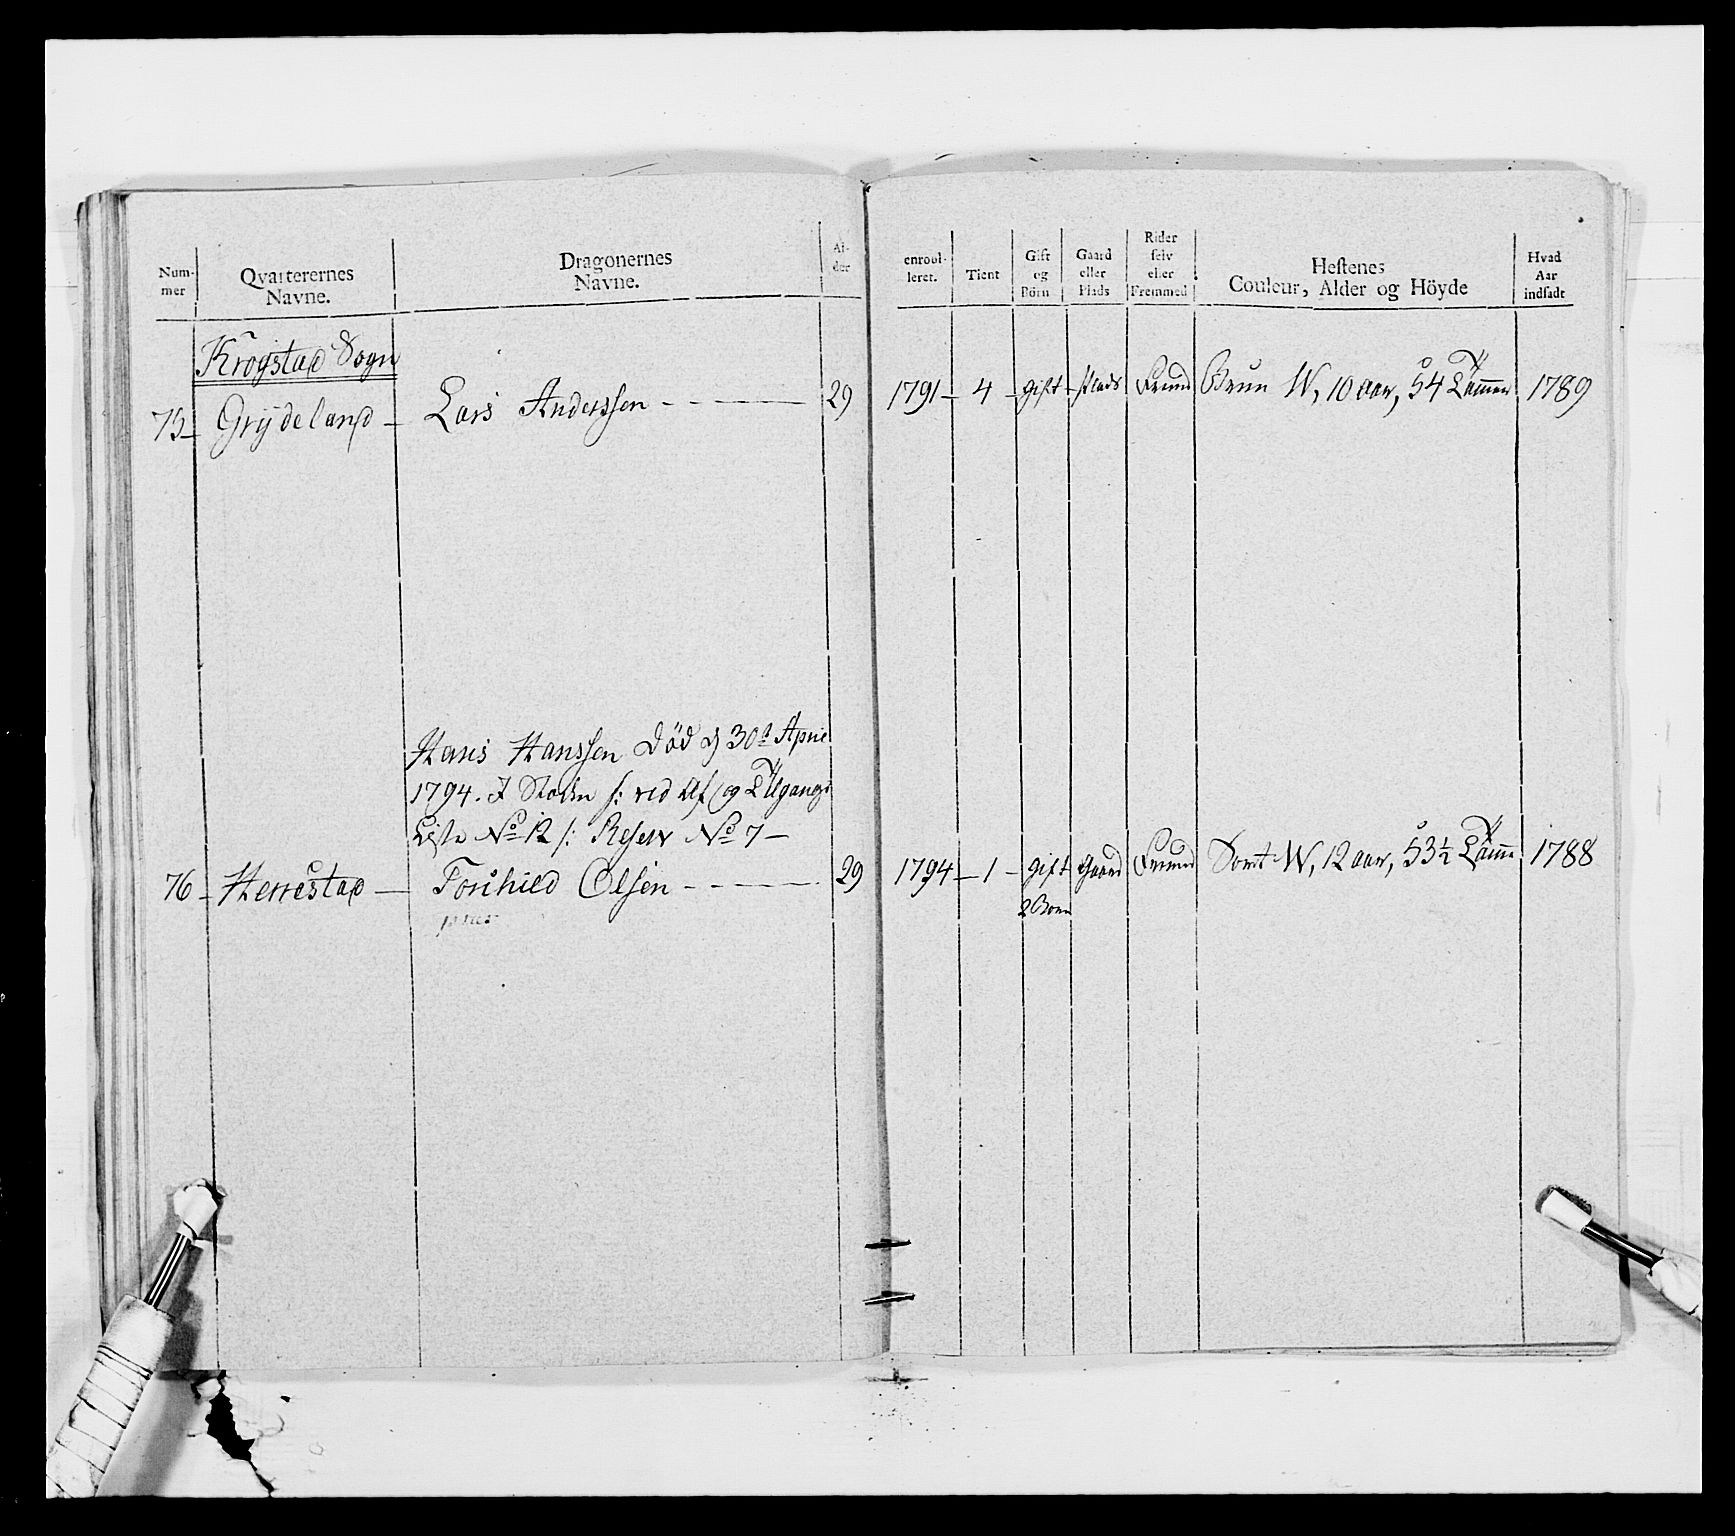 Num-
mer
Qvarterernes
Navne.
Dragonernes
Navne.
Al-
der
enroul-
leret.
Tient
Gift
og
Börn
Gaard
eller
Plads
Rider
selv
eller
Fremmed
Hestenes
Couleur, Alder og Höyde
Hvad
Aar
indsadt
Krogstad Sogn
75 Grÿdeland - Lars Anderssen 29 1791 - 4 - gift - plads Fremd Brun W, 10 aar, 54 Tomer 1789
Hans Hanssen Död d 30te April
1794. I /: vid Af og Tilgangs
Liste No 12 /: Reserv No 7 -
76 - Herrestad - Torkild Olsen 29 1794 - 1 - gift Gaard Fremd Sort W, 12 aar, 53½ Tomme 1788
2 Børn